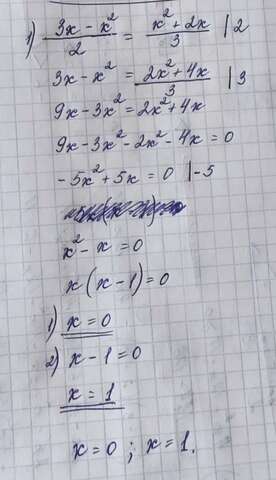 1) (3x - x²)/2 = (x² + 2x)/3 | 2
3x - x² = (2x² + 4x)/3 | 3
9x - 3x² = 2x² + 4x
9x - 3x² - 2x² - 4x = 0
-5x² + 5x = 0 | -5
x² - x = 0
x(x - 1) = 0
1) x = 0
2) x - 1 = 0
x = 1
x = 0 ; x = 1.